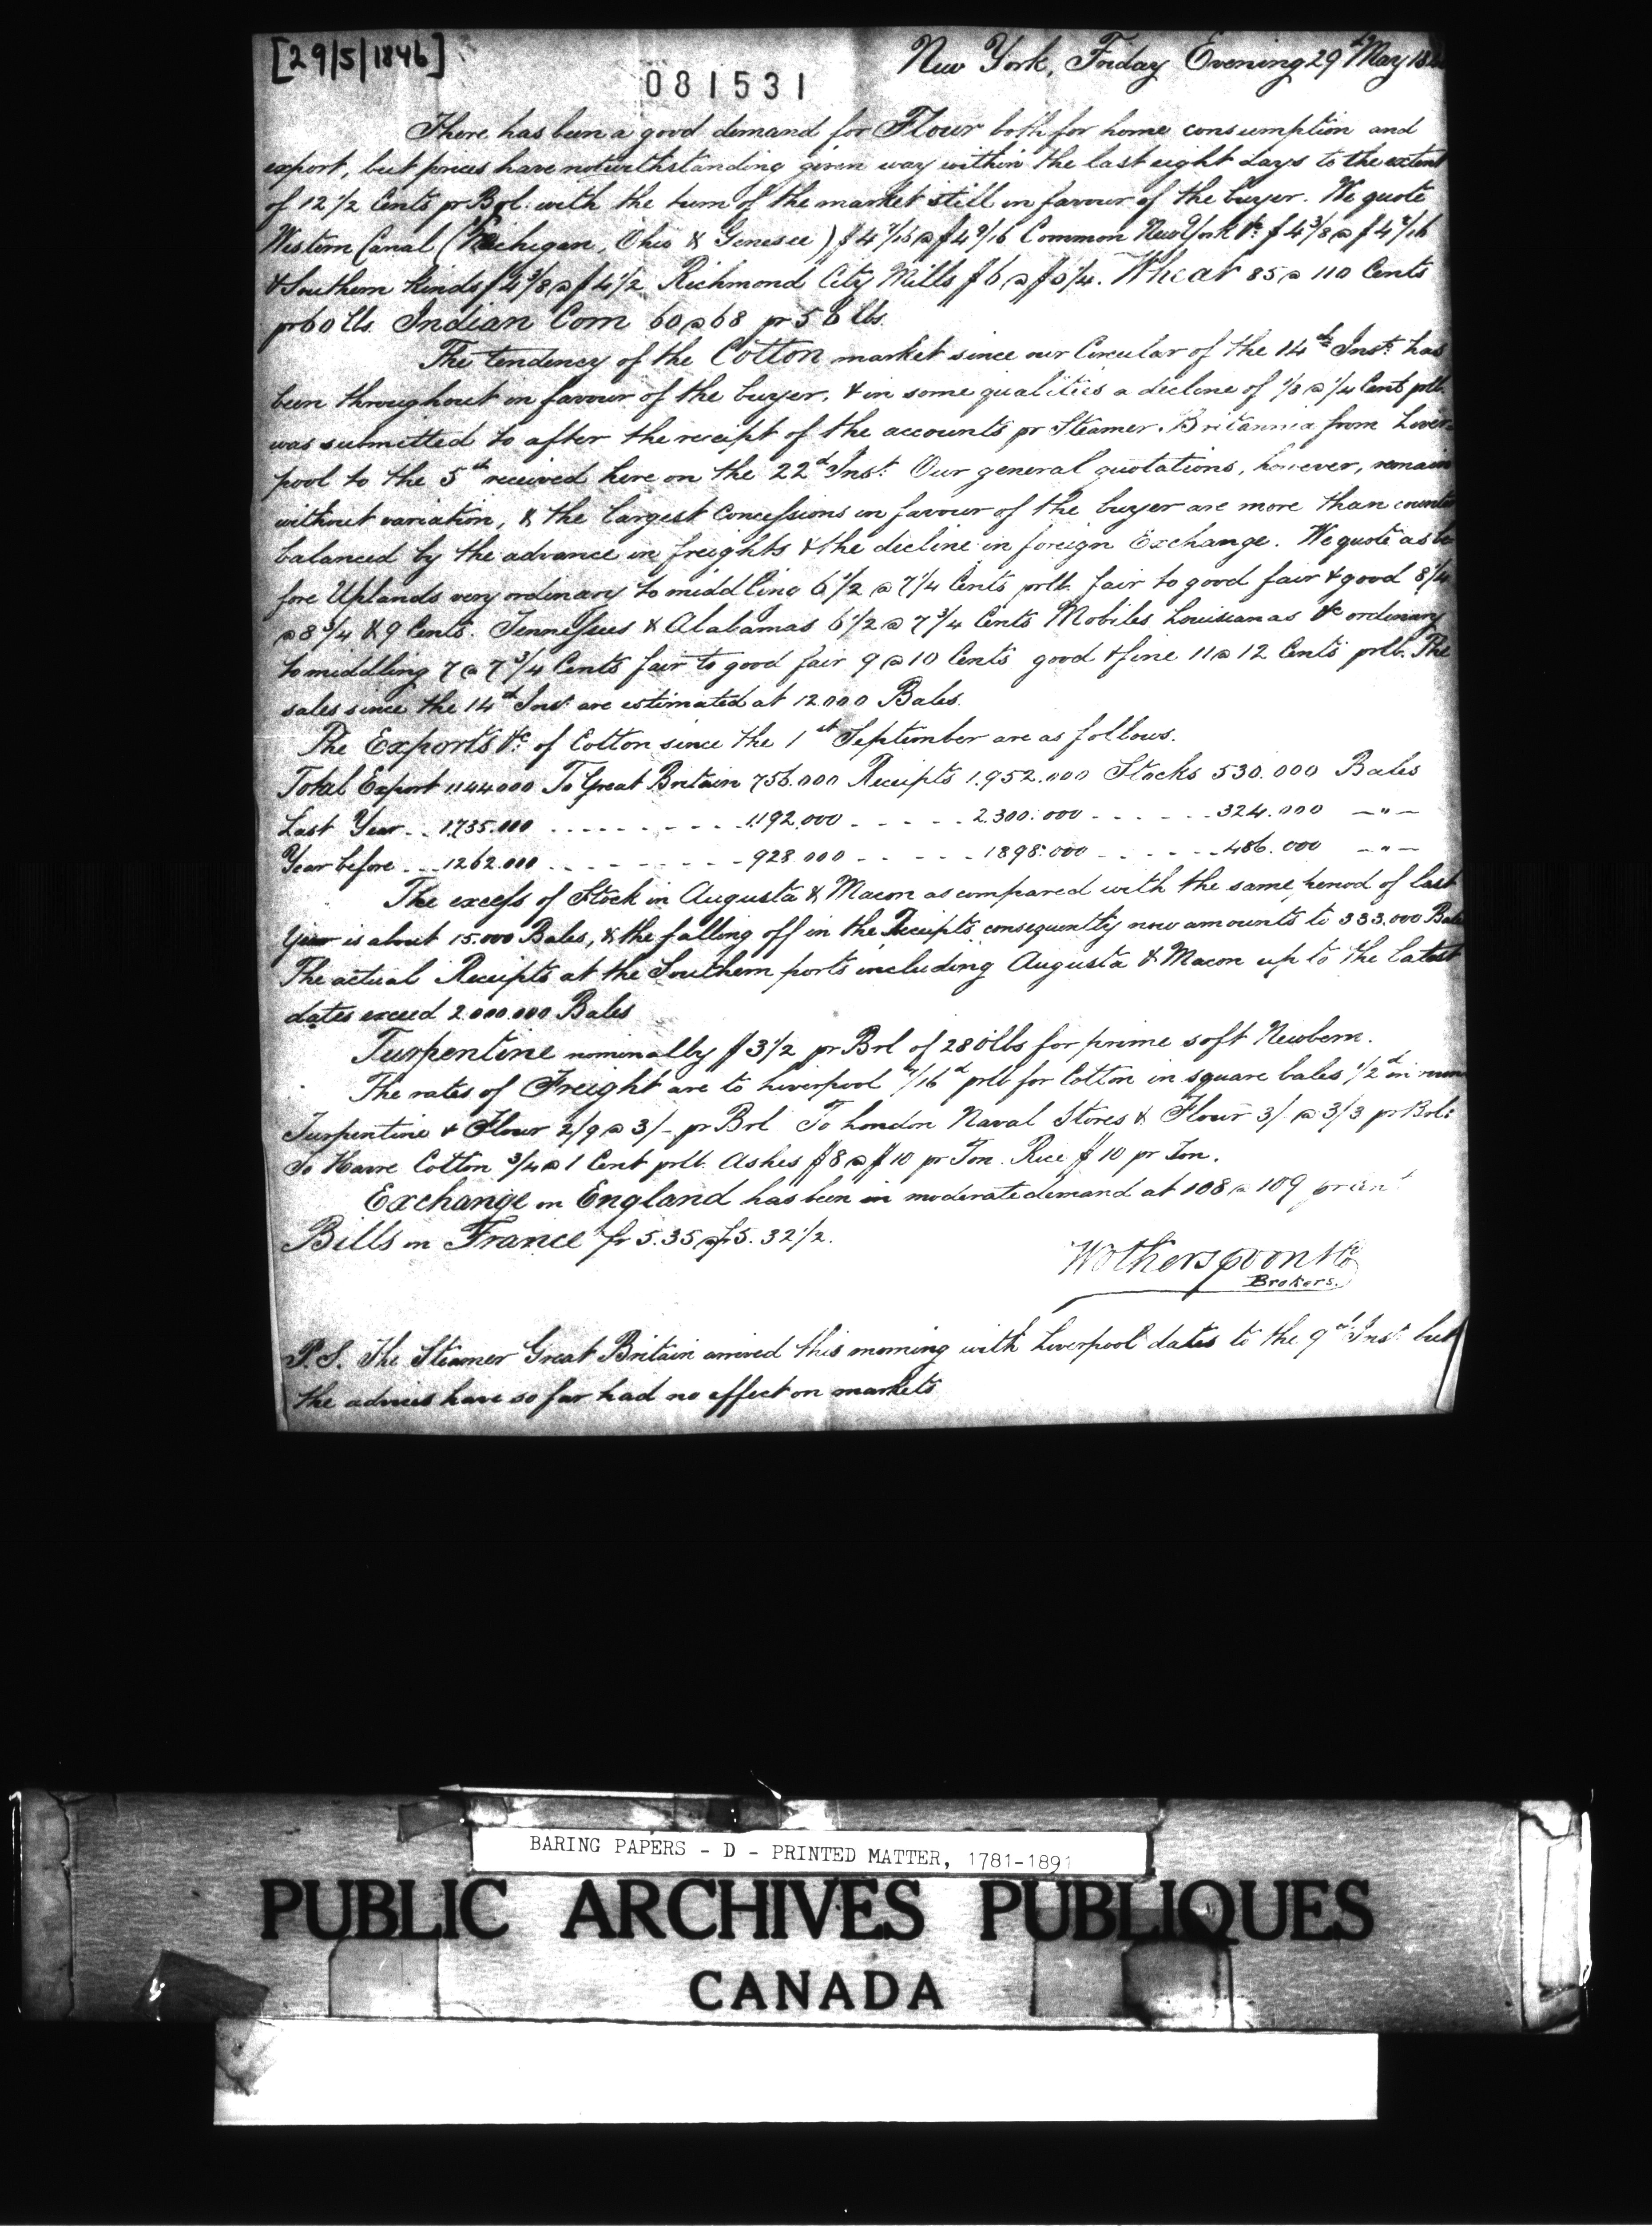 [29/5/1846]
New York, Friday Evening 29th May 18
081531
There has been a good demand for Flour both for home consumption and
export, but prices have notwithstanding given way within the last eight days to the extent
of 12 1/2 Cents pr Brl: with the turn of the market still in favour of the buyer. We quote
Western Canal (Michigan, Ohio & Genesee) $4 7/16 @ $4 9/16 Common New York &c $4 3/8 @ $4 7/16
& Southern kinds $4 3/8 @ $4 1/2 Richmond City Mills $6 @ $6 1/4. Wheat 85 @ 110 Cents
pr 60 lbs. Indian Corn 60 @ 68 pr 56 lbs.
The tendency of the Cotton market since our Circular of the 14th Inst: has
been throughout in favour of the buyer, & in some qualities a decline of 1/8 @ 1/4 Cent prlb.
was submitted to after the receipt of the accounts pr Steamer Britannia from Liver-
pool to the 5th received here on the 22d Inst: Our general quotations, however, remain
without variation, & the largest Concessions in favour of the buyer are more than counter
balanced by the advance in freights & the decline in foreign Exchange. We quote as be
fore Uplands very ordinary to middling 6 1/2 @ 7 1/4 Cents prlb. fair to good fair & good 8 1/4
@ 8 3/4 & 9 Cents. Tennessees & Alabamas 6 1/2 @ 7 3/4 Cents Mobiles Louisianas &c ordinary
to middling 7 @ 7 3/4 Cents fair to good fair 9 @ 10 Cents good & fine 11 @ 12 Cents prlb. The
sales since the 14th Inst: are estimated at 12000 Bales.
The Exports &c: of Cotton since the 1st September are as follows.
Total Export 1144000 To Great Britain 756.000 Receipts 1.952.000 Stocks 530.000 Bales
Last Year .. 1.735.000 ......... 1192.000 ..... 2.300.000 ...... 324.000 —"—
Year before ... 1262.000 ......... 928.000 ..... 1898.000 ...... 486.000 —"—
The excess of Stock in Augusta & Macon as compared with the same period of last
Year is about 15.000 Bales, & the falling off in the Receipts consequently now amounts to 333.000 Bales
The actual Receipts at the Southern ports including Augusta & Macon up to the latest
dates exceed 2.000.000 Bales
Turpentine nominally $3 1/2 pr Brl of 280lbs for prime soft Newbern.
The rates of Freight are to Liverpool /16d prlb for Cotton in square bales 1/2d in
Turpentine & Flour 2/9 @ 3/- pr Brl To London Naval Stores & Flour 3/- @ 3/3 pr Brl:
To Havre Cotton 3/4 @ 1 Cent prlb. Ashes $8 @ $10 pr Ton. Rice $10 pr Ton.
Exchange on England has been in moderate demand at 108 @ 109 pr cent
Bills on France fr 5.35 @ fr 5.32 1/2.
Wotherspoon & Co
Brokers.
P.S. The Steamer Great Britain arrived this morning with Liverpool dates to the 9th Inst: but
the advices have so far had no effect on markets
BARING PAPERS - D - PRINTED MATTER, 1781-1891
PUBLIC ARCHIVES PUBLIQUES
CANADA